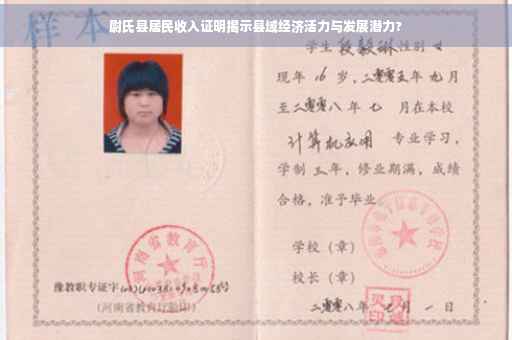 尉氏县居民收入证明揭示县域经济活力与发展潜力?
样本
学生段毅琳性别女
现年16岁,二零零五年九月
至二零零八年七月在本校
计算机应用 专业学习,
学制三年,修业期满,成绩
合格,准予毕业
学校(章)
校长(章)
二零零八年 月一日
河南省教育厅
豫教职专证字
(河南省教育厅验印)